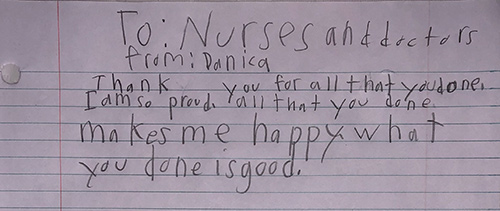 To: Nurses and doctors
from: Danica
Thank you for all that you done.
I am so proud. all that you done.
makes me happy. what
you done is good.